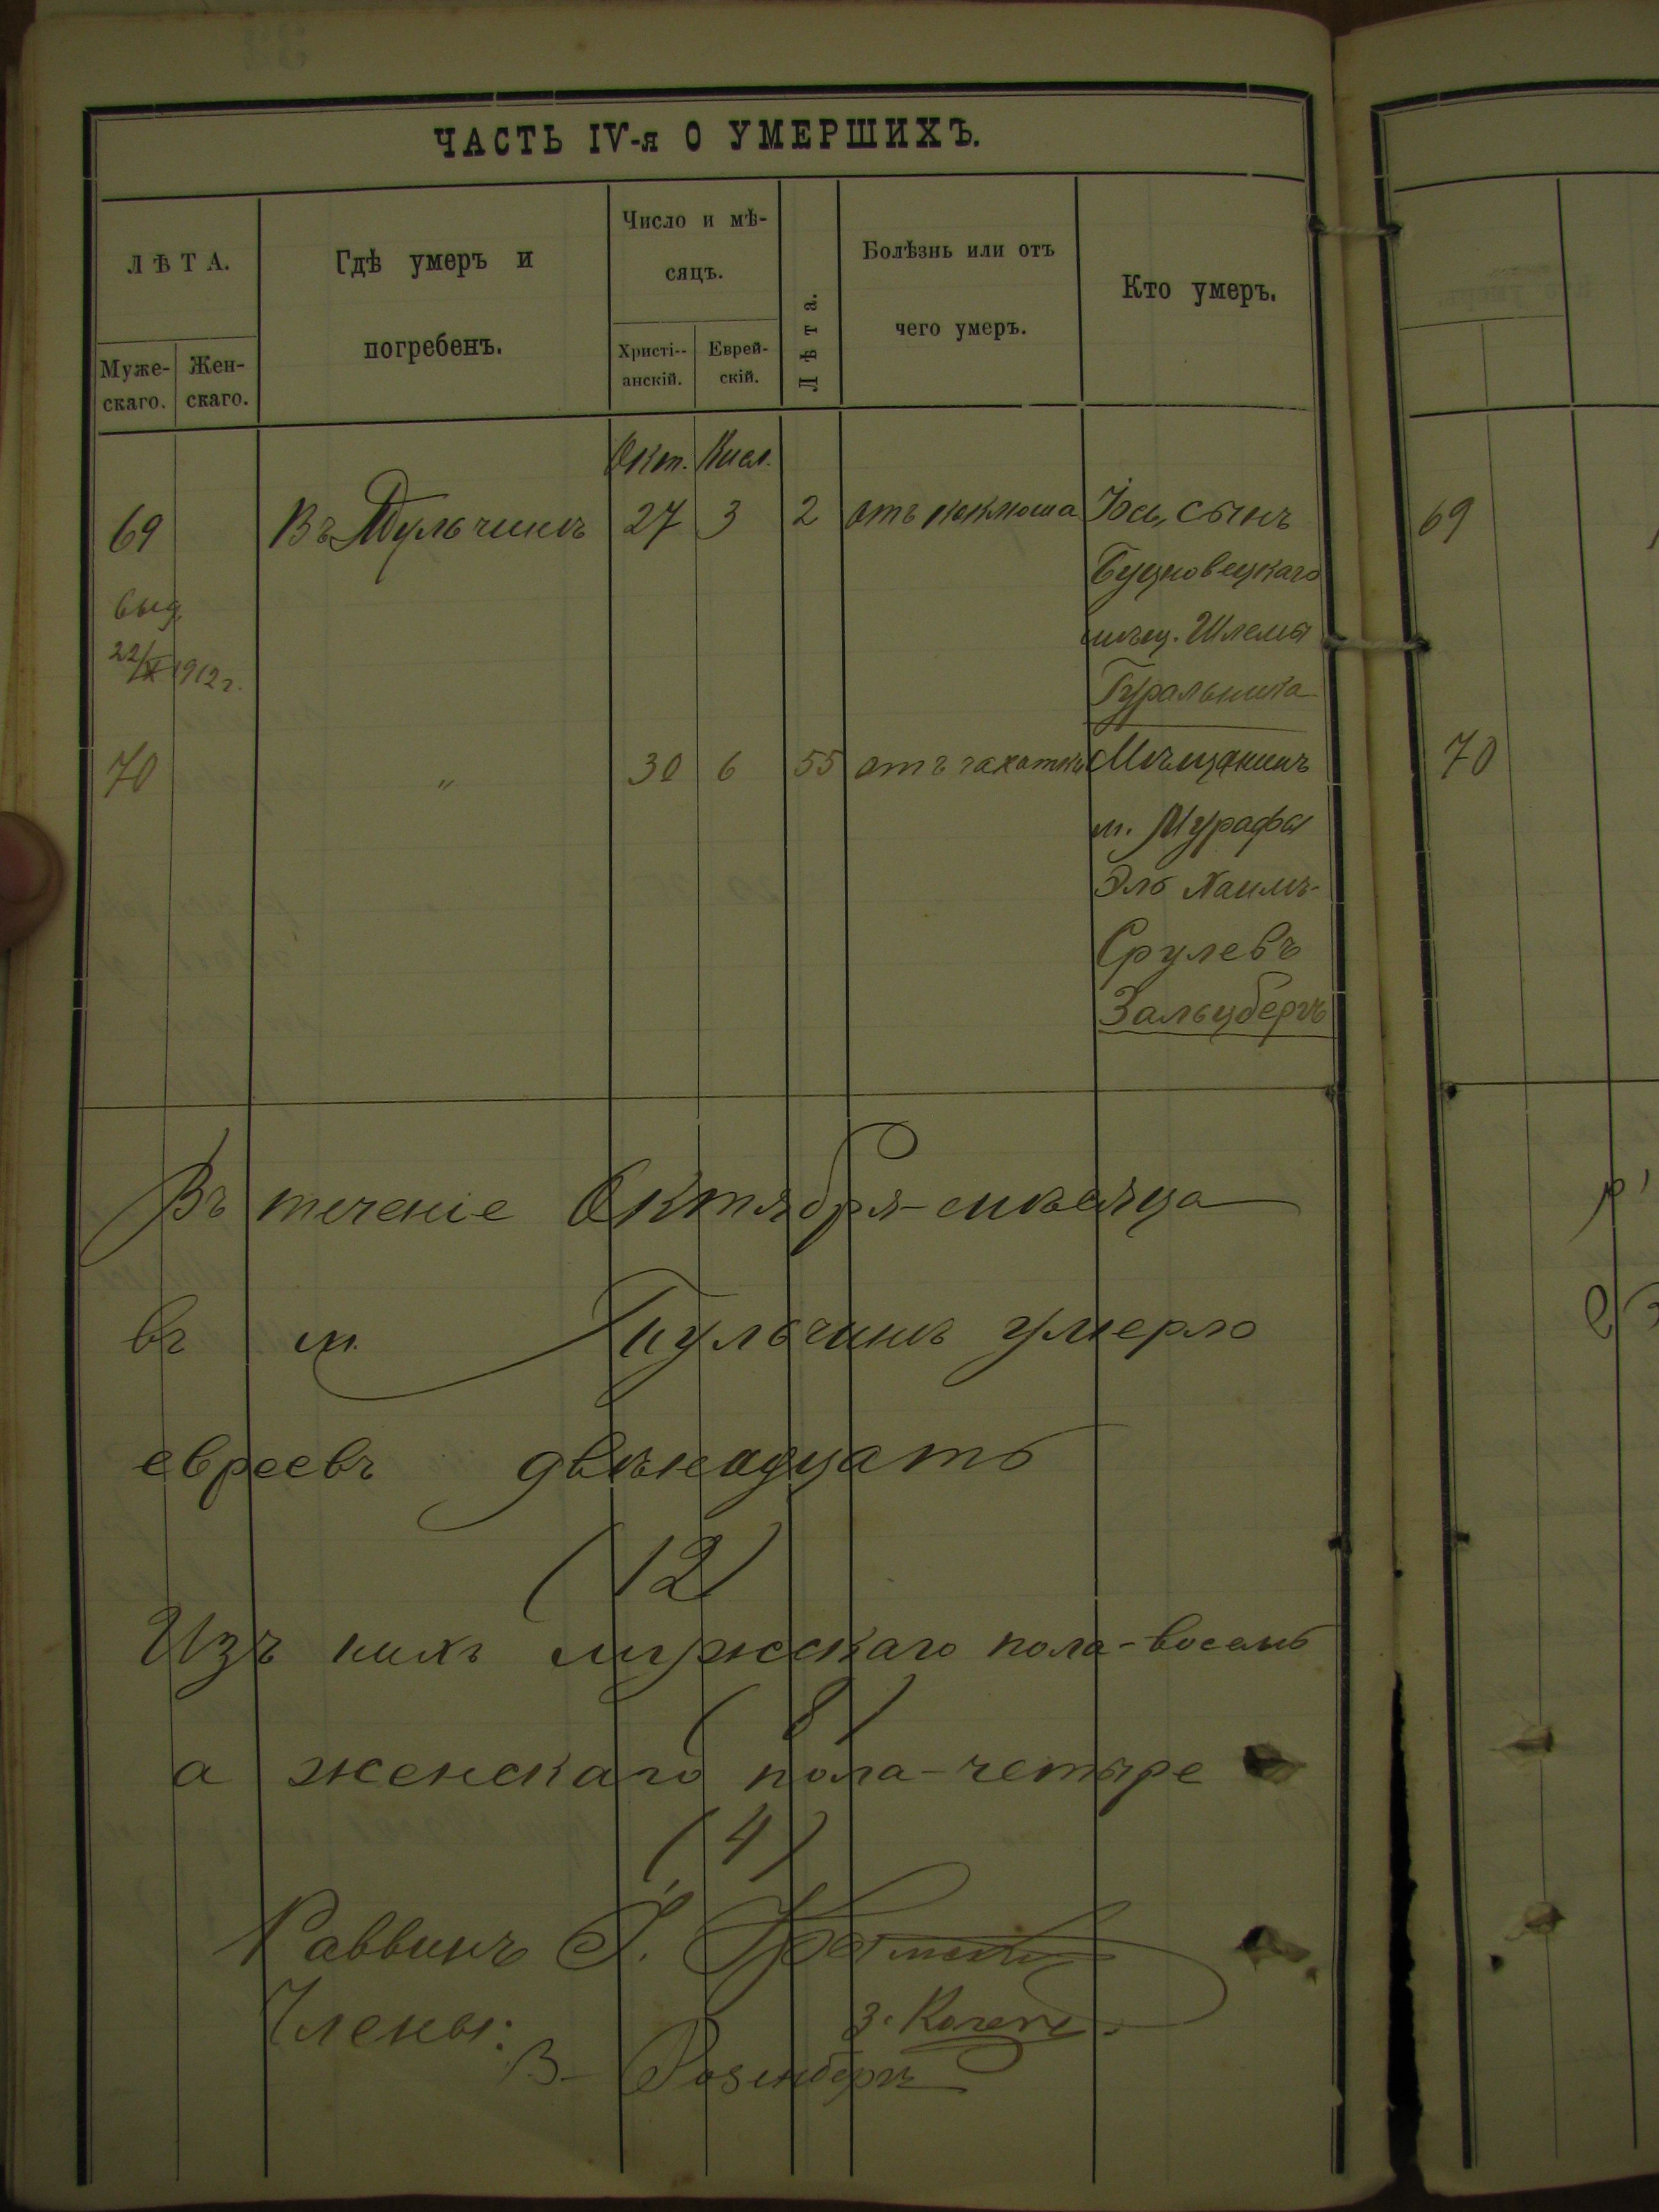 ЧАСТЬ IV-я О УМЕРШИХЪ.
ЛѢТА.
Муже-
скаго.
Жен-
скаго.
Гдѣ умеръ и
погребенъ.
Число и мѣ-
сяцъ.
Христі--
анскій.
Еврей-
скій.
Лѣта.
Болѣзнь или отъ
чего умеръ.
Кто умеръ.
Окт. Кисл.
69 Въ Тульчинѣ 27 3 2 отъ коклюша Іось, сынъ
Буцновецкаго
выд.
мѣщ. Шлемы
22/XI 1912 г.
Гуральника
70 " 30 6 55 отъ чахотки Мѣщанинъ
м. Мурафы
Эль Хаимъ-
Срулевъ
Зальцбергъ
Въ теченіе Октября-мѣсяца
въ м. Тульчинѣ умерло
евреевъ двѣнадцать
(12)
Изъ нихъ мужскаго пола-восемь
(8)
а женскаго пола-четыре
(4)
Раввинъ
Члены:
З.
В- Розенбергъ
69
70